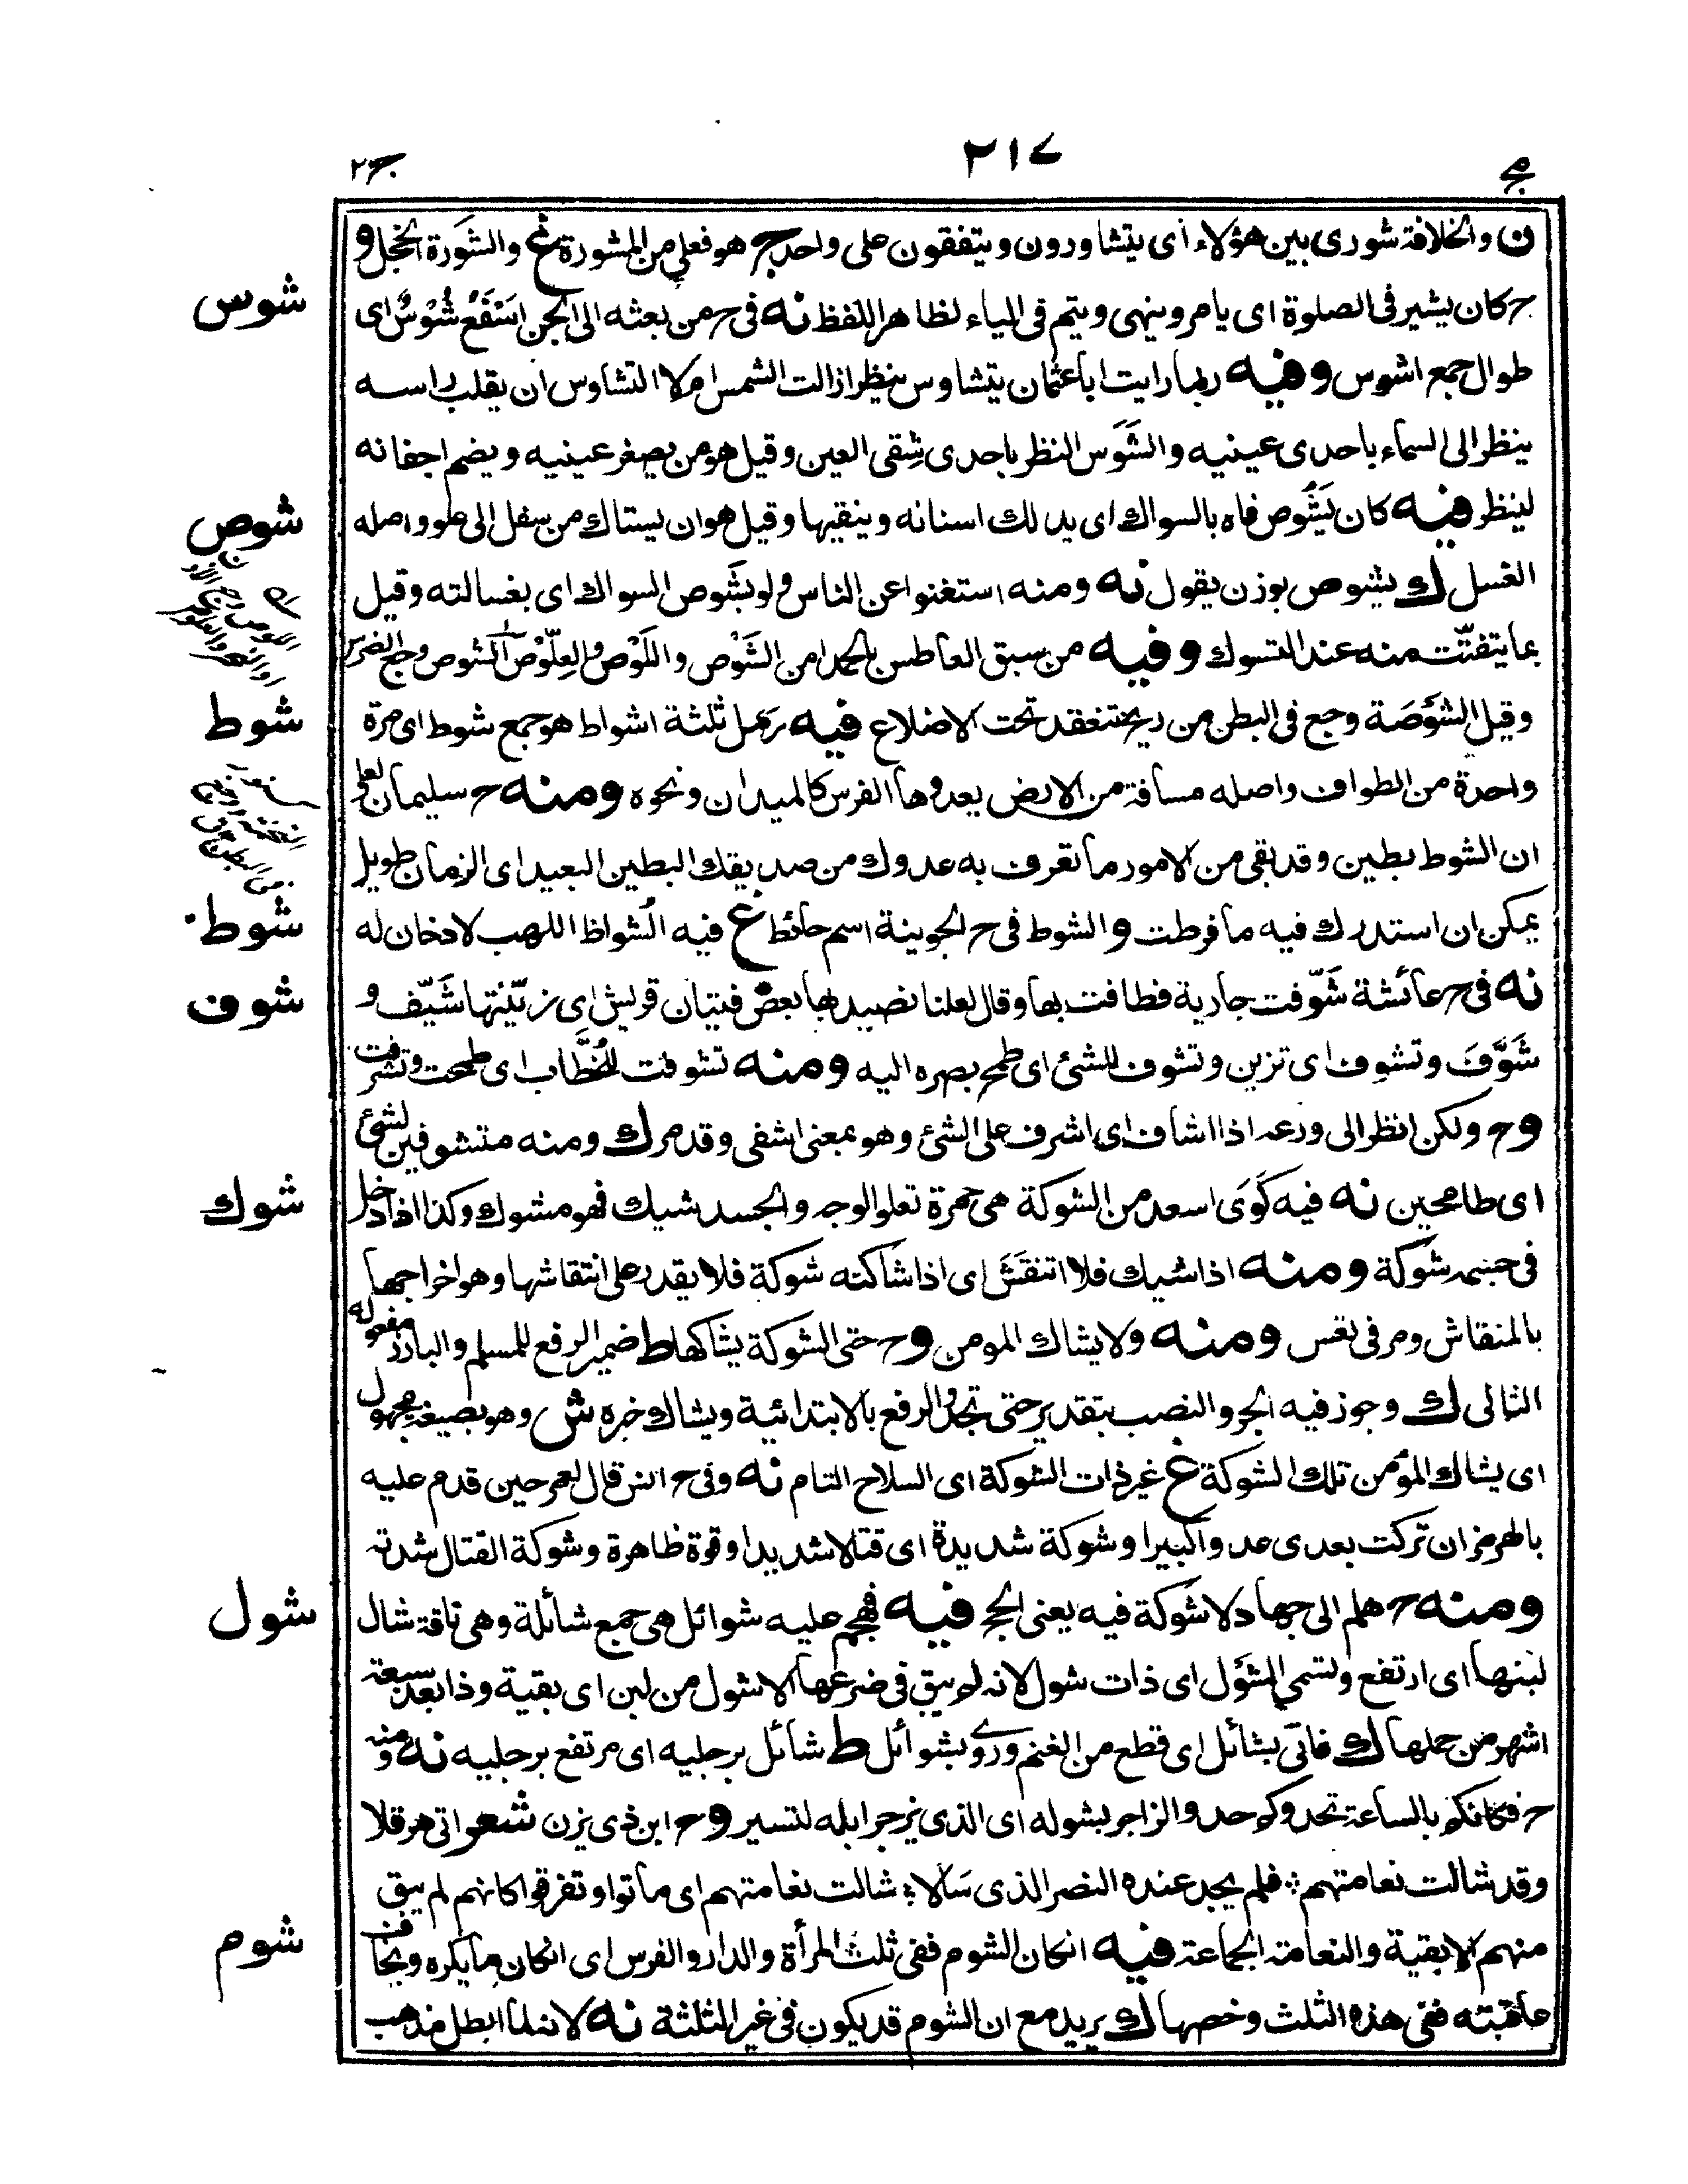 ٢١٧
ن والخلافة شورى بين هؤلاء أى يتشاورون ويتفقون على واحد ج هو فعلى من المشورة غ والشورة الخجل و
ح كان يشير فى الصلوة اى يامر وينهى ويتم فى الياء لظاهر اللفظ نه فى ح من بعثه الى الجن اسقع شُوْسٌ اى
شوس
طوال جمع اشوس وفيه ربما رايت اباعثمان يتشاوس ينظر ازالت الشمس ام لا التشاوس ان يقلب راسه
ينظر الى السماء باحدى عينيه والشَوَس النظر باحدى شِقى العين وقيل هو من يصغر عينيه ويضم اجفانه
لينظر فيه كان يَشُوص فاه بالسواك اى يدلك اسنانه وينقيها وقيل هو ان يستاك من سفل الى علو واصله
شوص
الغسل ك يشوص بوزن يقول نه ومنه استغنوا عن الناس ولو بشَوص السواك اى بغسالته وقيل
بما يتفتّت منه عند التسوك وفيه من سبق العاطس بالحمد امن الشَوْص واللَوْص والعِلّوْص الشوص وجع الضرس
وقيل الشَوْصَة وجع فى البطن من ريح تنعقد تحت الاضلاع فيه رَمَل ثلثة اشواط هو جمع شوط اى مرة
شوط
واحدة من الطواف واصله مسافة من الارض يعدوها الفرس كالميدان ونحوه ومنه ح سليمان لعلى
ان الشوط بطين وقد بقى من الامور ما تعرف به عدوك من صديقك البطين البعيد اى الزمان طويل
يمكن ان استدرك فيه ما فرطت و الشوط فى ح الجوينة اسم حائط غ فيه الشُواظ اللهب لا دخان له
شوظ
نه فى ح عائشة شَوّفت جارية فطافت بها وقال لعلنا نصيد بها بعض فتيان قريش اى زيّنتها شَيّف و
شوف
شَوَّفَ وتشوف اى تزين وتشوف للشئ اى طمح بصره اليه ومنه تشوفت للخُطَّاب اى طمحت وتشرفت
وح ولكن انظر الى ورعه اذا اشاف اى اشرف على الشئ وهو بمعنى اشفى وقد مر ك ومنه متشوفين لشئ
اى طامحين نه فيه كَوَى اسعد من الشوكة هى حمرة تعلو الوجه والجسد شيك فهو مشوك وكذا اذا دخل
شوك
فى جسمه شوكة ومنه اذا شيك فلا انتقش اى اذا شاكته شوكة فلا يقدر على انتقاشها وهو اخراجها
بالمنقاش ومر فى تعس ومنه ولا يشاك المومن وح حتى الشوكة يشاكها ط ضمير الرفع للمسلم والبارز مفعوله
الثانى ك وجوز فيه الجر والنصب بتقدير حتى تجد والرفع بالابتدائية ويشاك خبره ش وهو بصيغة مجهول
اى يشاك المؤمن تلك الشوكة غ غير ذات الشوكة اى السلاح التام نه وفى ح انس قال لعمر حين قدم عليه
بالهرمزان تركت بعدى عدوا كبيرا وشوكة شديدة اى قتالا شديدا وقوة ظاهرة وشوكة القتال شدته
ومنه ح هلم الى جهاد لا شوكة فيه يعنى الحج فيه فهجم عليه شوائل هى جمع شائلة وهى ناقة شال
شول
لبنها اى ارتفع وتسمى الشَوْل اى ذات شول لانه لم يبق فى ضرعها الا شول من لبن اى بقية وذا بعد سبعة
اشهر من حملها ك فاتى بشائل اى قطع من الغنم وروى بشوائل ط شائل برجليه اى مرتفع برجليه نه ومنه
ح فكانكم بالساعة تحدوكم حدو الزاجر بشوله اى الذى يزجر ابله لتسير وح ابن ذى يزن شعر اتى هرقلا
وقد شالت نعامتهم ؞ فلم يجد عنده النصر الذى سَالا ؞ شالت نعامتهم اى ماتوا وتفرقوا كانهم لم يبق
منهم الا بقية والنعامة الجماعة فيه انكان الشوم ففى ثلث المرأة والدار والفرس اى انكان ما يكره ويخاف
شوم
عاقبته ففى هذه الثلث وخصها ك يريد مع ان الشوم قد يكون فى غير الثلثة نه لانه لما ابطل مذهب